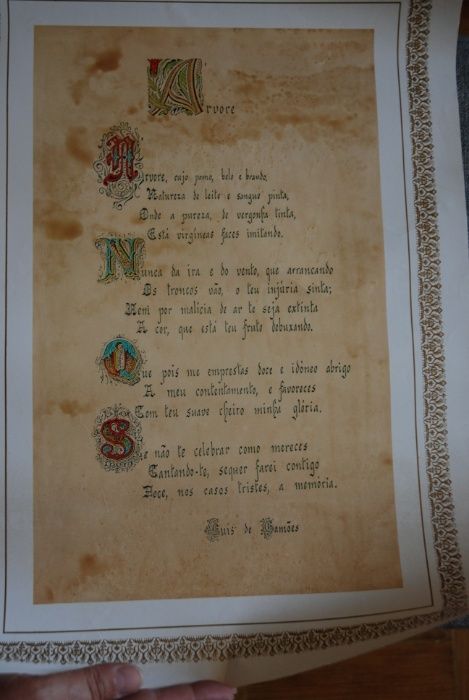 Arvore
Arvore, cujo pomo, belo e brando,
Natureza de leite e sangue pinta,
Onde a pureza, de vergonha tinta,
Está virgíneas faces imitando.
Nunca da ira e do vento, que arrancando
Os troncos vão, o teu injúria sinta;
Nem por malícia de ar te seja extinta
A cor, que está teu fruto debuxando.
Que pois me emprestas doce e idóneo abrigo
A meu contentamento, e favoreces
Com teu suave cheiro minha glória,
Se não te celebrar como mereces
Cantando-te, sequer farei contigo
Doce, nos casos tristes, a memória.
Luis de Camões